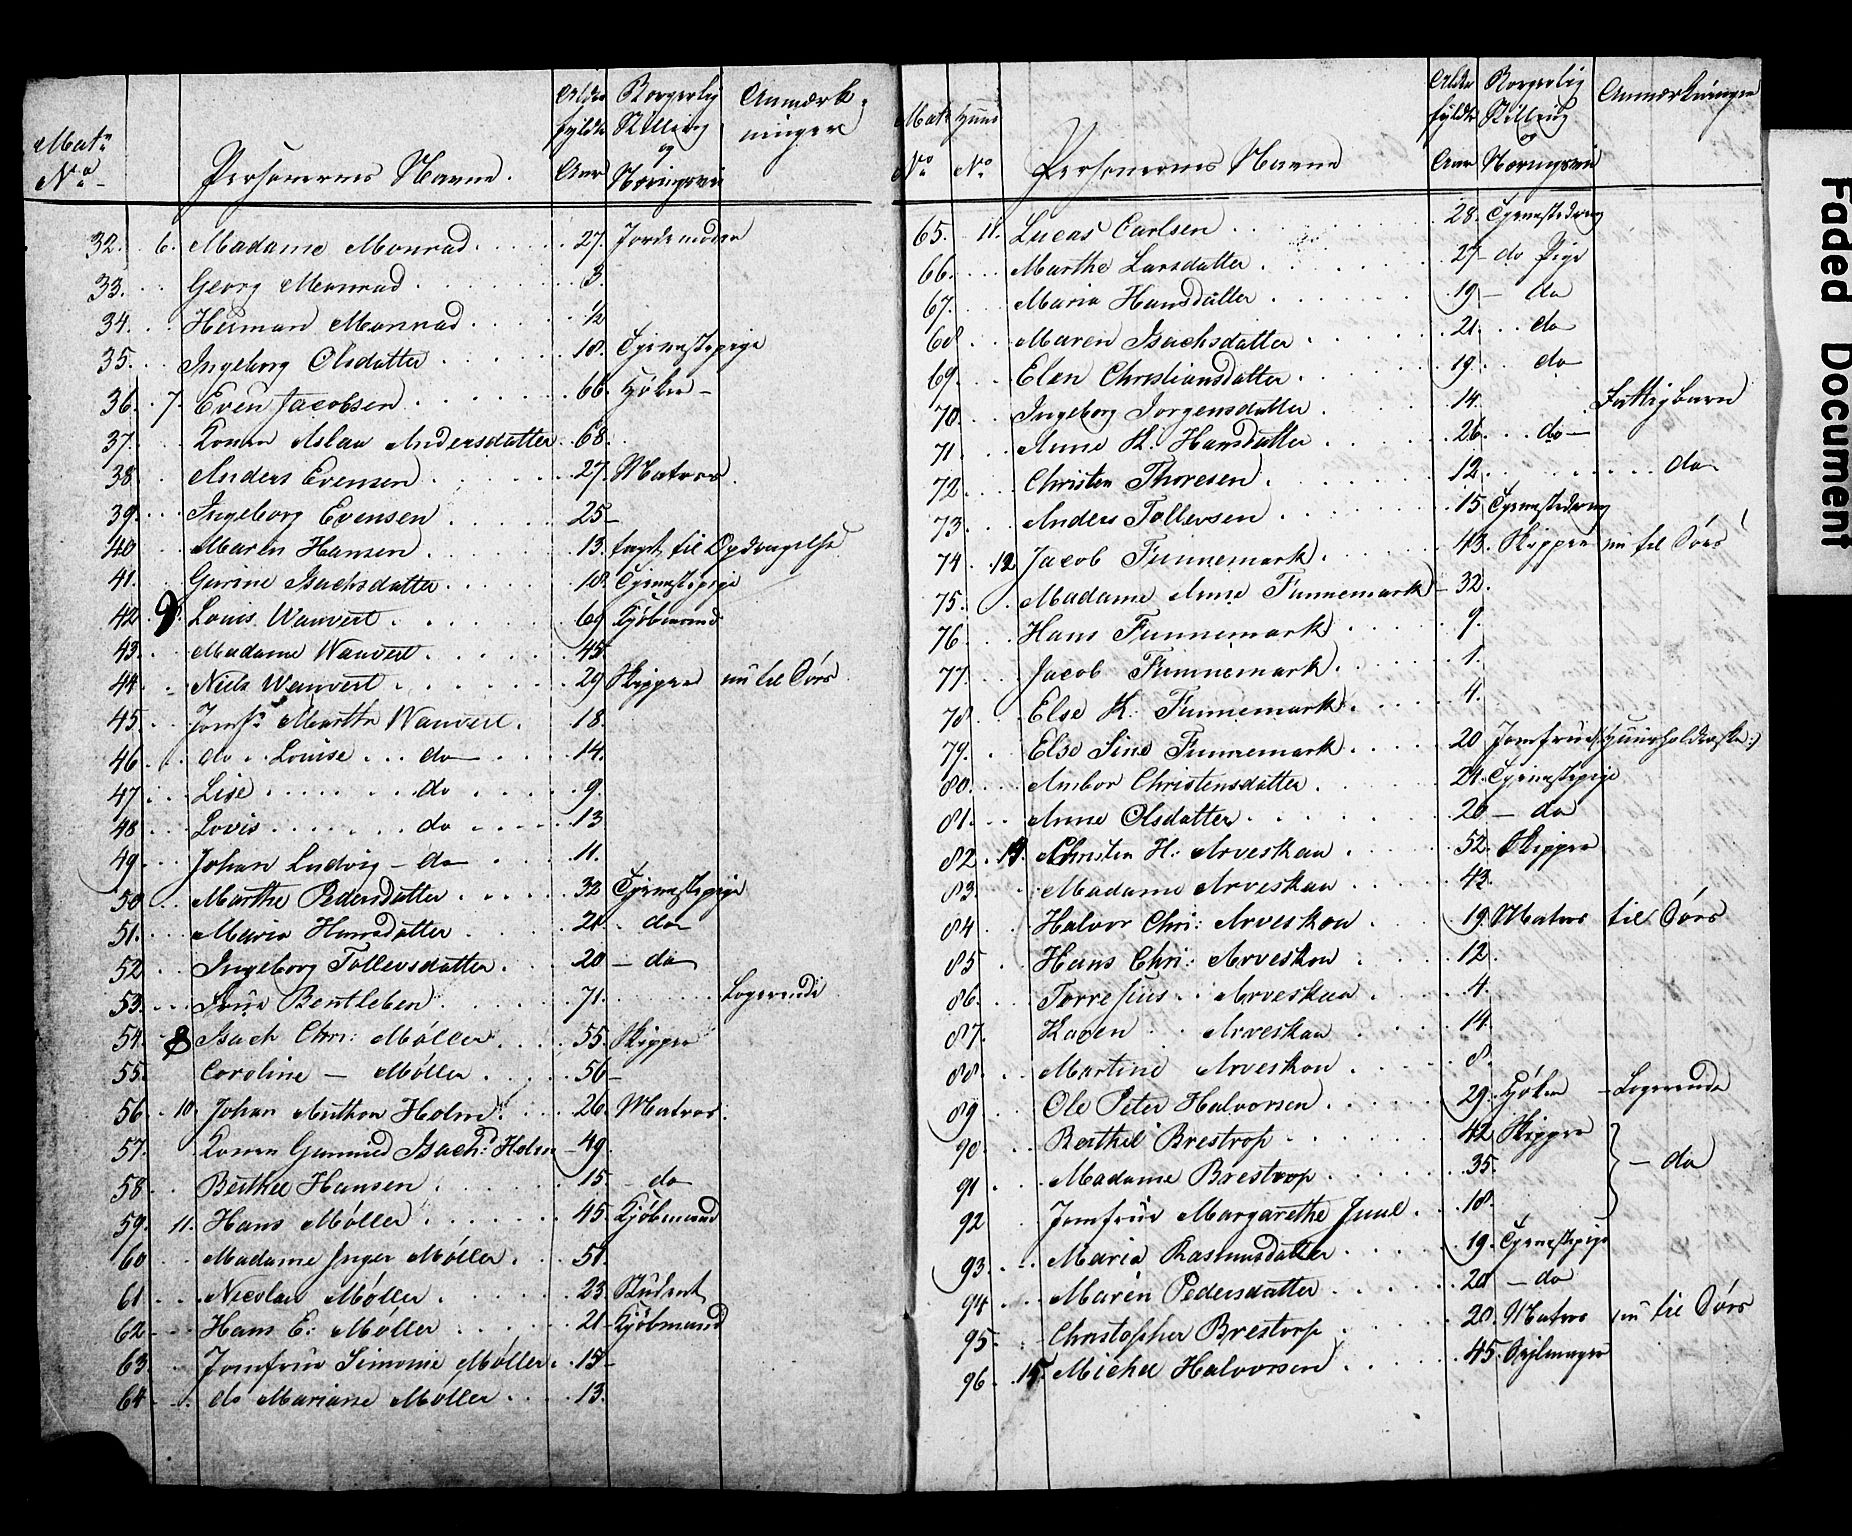 Matr No
Personernes Navne.
Alder fyldte Aar
Borgerlig Stilling og Næringsvei
Anmærkninger
32. 6. Madame Monrad 27. Jordemoder
33. Georg Monrad 3.
34. Herman Monrad ½
35. Ingeborg Olsdatter 18. Tjenestepige
36. 7. Even Jacobsen 66. Høker
37. Konen Aslau Andersdatter 68.
38. Anders Evensen 27. Matros
39. Ingeborg Evensen 25
40 Maren Hansen 13. taget til Opdragelse
41. Gurine Isachsdatter 18. Tjenestepige
42 Louis Wauvert 69 Kjøbmand
43. Madame Wauvert 45
44. Niels Wauvert 29 Skipper nu til Søes
45. Jomfr Marthe Wauvert. 18.
46. do Louise do 14.
47 Lise do 9.
48 Lovis do 13
49. Johan Ludvig do 11.
50. Marthe Pedersdatter 32 Tjenestepige
51. Maria Hansdatter 21 do
52 Ingeborg Tollevsdatter. 20 do
53. Frue Bentleben 71. Logerende
54. Isach Chri: Møller 55. Skipper
55. Caroline Møller 56
56. 10. Johan Anthon Holm 26. Matros.
57. Konen Gunnild Isach: Holm 49.
58 Berthe Hansen 15 do
59. 11. Hans Møller 45. Kjøbmand
60 Madame Inger Møller. 51.
61. Nicolai Møller 23 Student
62 Hans E: Møller 21 Kjøbmand
63 Jomfrue Simonie Møller. 15
64 do Mariane Møller 13.
Matr No
Huus No
Personernes Navne
Alder fyldte Aar
Borgerlig Stilling og Næringsvei
Anmærkninger
65. 11. Lucas Carlsen 28. Tjenestedreng
66. Marthe Larsdatter 27 do Pige
67. Maria Hansdatter 19 do
68 Maren Isachsdatter 21. do
69. Elen Christiansdatter 19. do
70. Ingeborg Jorgensdatter 14. Fattigbarn
71 Anne K. Hansdatter 26 do
72 Christen Thoresen 12. do
73. Anders Tollevsen 15 Tjenestedreng
74 12 Jacob Funnemark 43. Skipper nu til Søes
75. Madame Anne Funnemark 32.
76 Hans Funnemark 9.
77 Jacob Funnemark 1.
78 Else K. Funnemark. 4.
79. Else Sine Funnemark 20 Jomfrue (Huusholderske:)
80. Ambor Christensdatter 24. Tjenestepige
81. Anne Olsdatter 20 do
82. Christen H: Arveskau 52. Skipper
83. Madame Arveskau 43.
84 Halvor Chri: Arveskou 19. Matros til Søes
85 Hans Chri: Arveskou 12.
86. Torresius Arveskau 4.
87. Karen Arveskau 14.
88. Martine Arveskou 8.
89 Ole Peter Halvorsen 29. Høker Logerende
90. Berthel Brestrop 42 Skipper
91 Madame Brestrop 35. do
92 Jomfrue Margarethe Juul 18.
93. Maria Rasmusdatter 19. Tjenestepige
94. Maren Pedersdatter 20 do
95. Christopher Brestorp 28. Matros nu til Søes
96. 15. Michel Halvorsen 45. Sejlmager
Faded Document